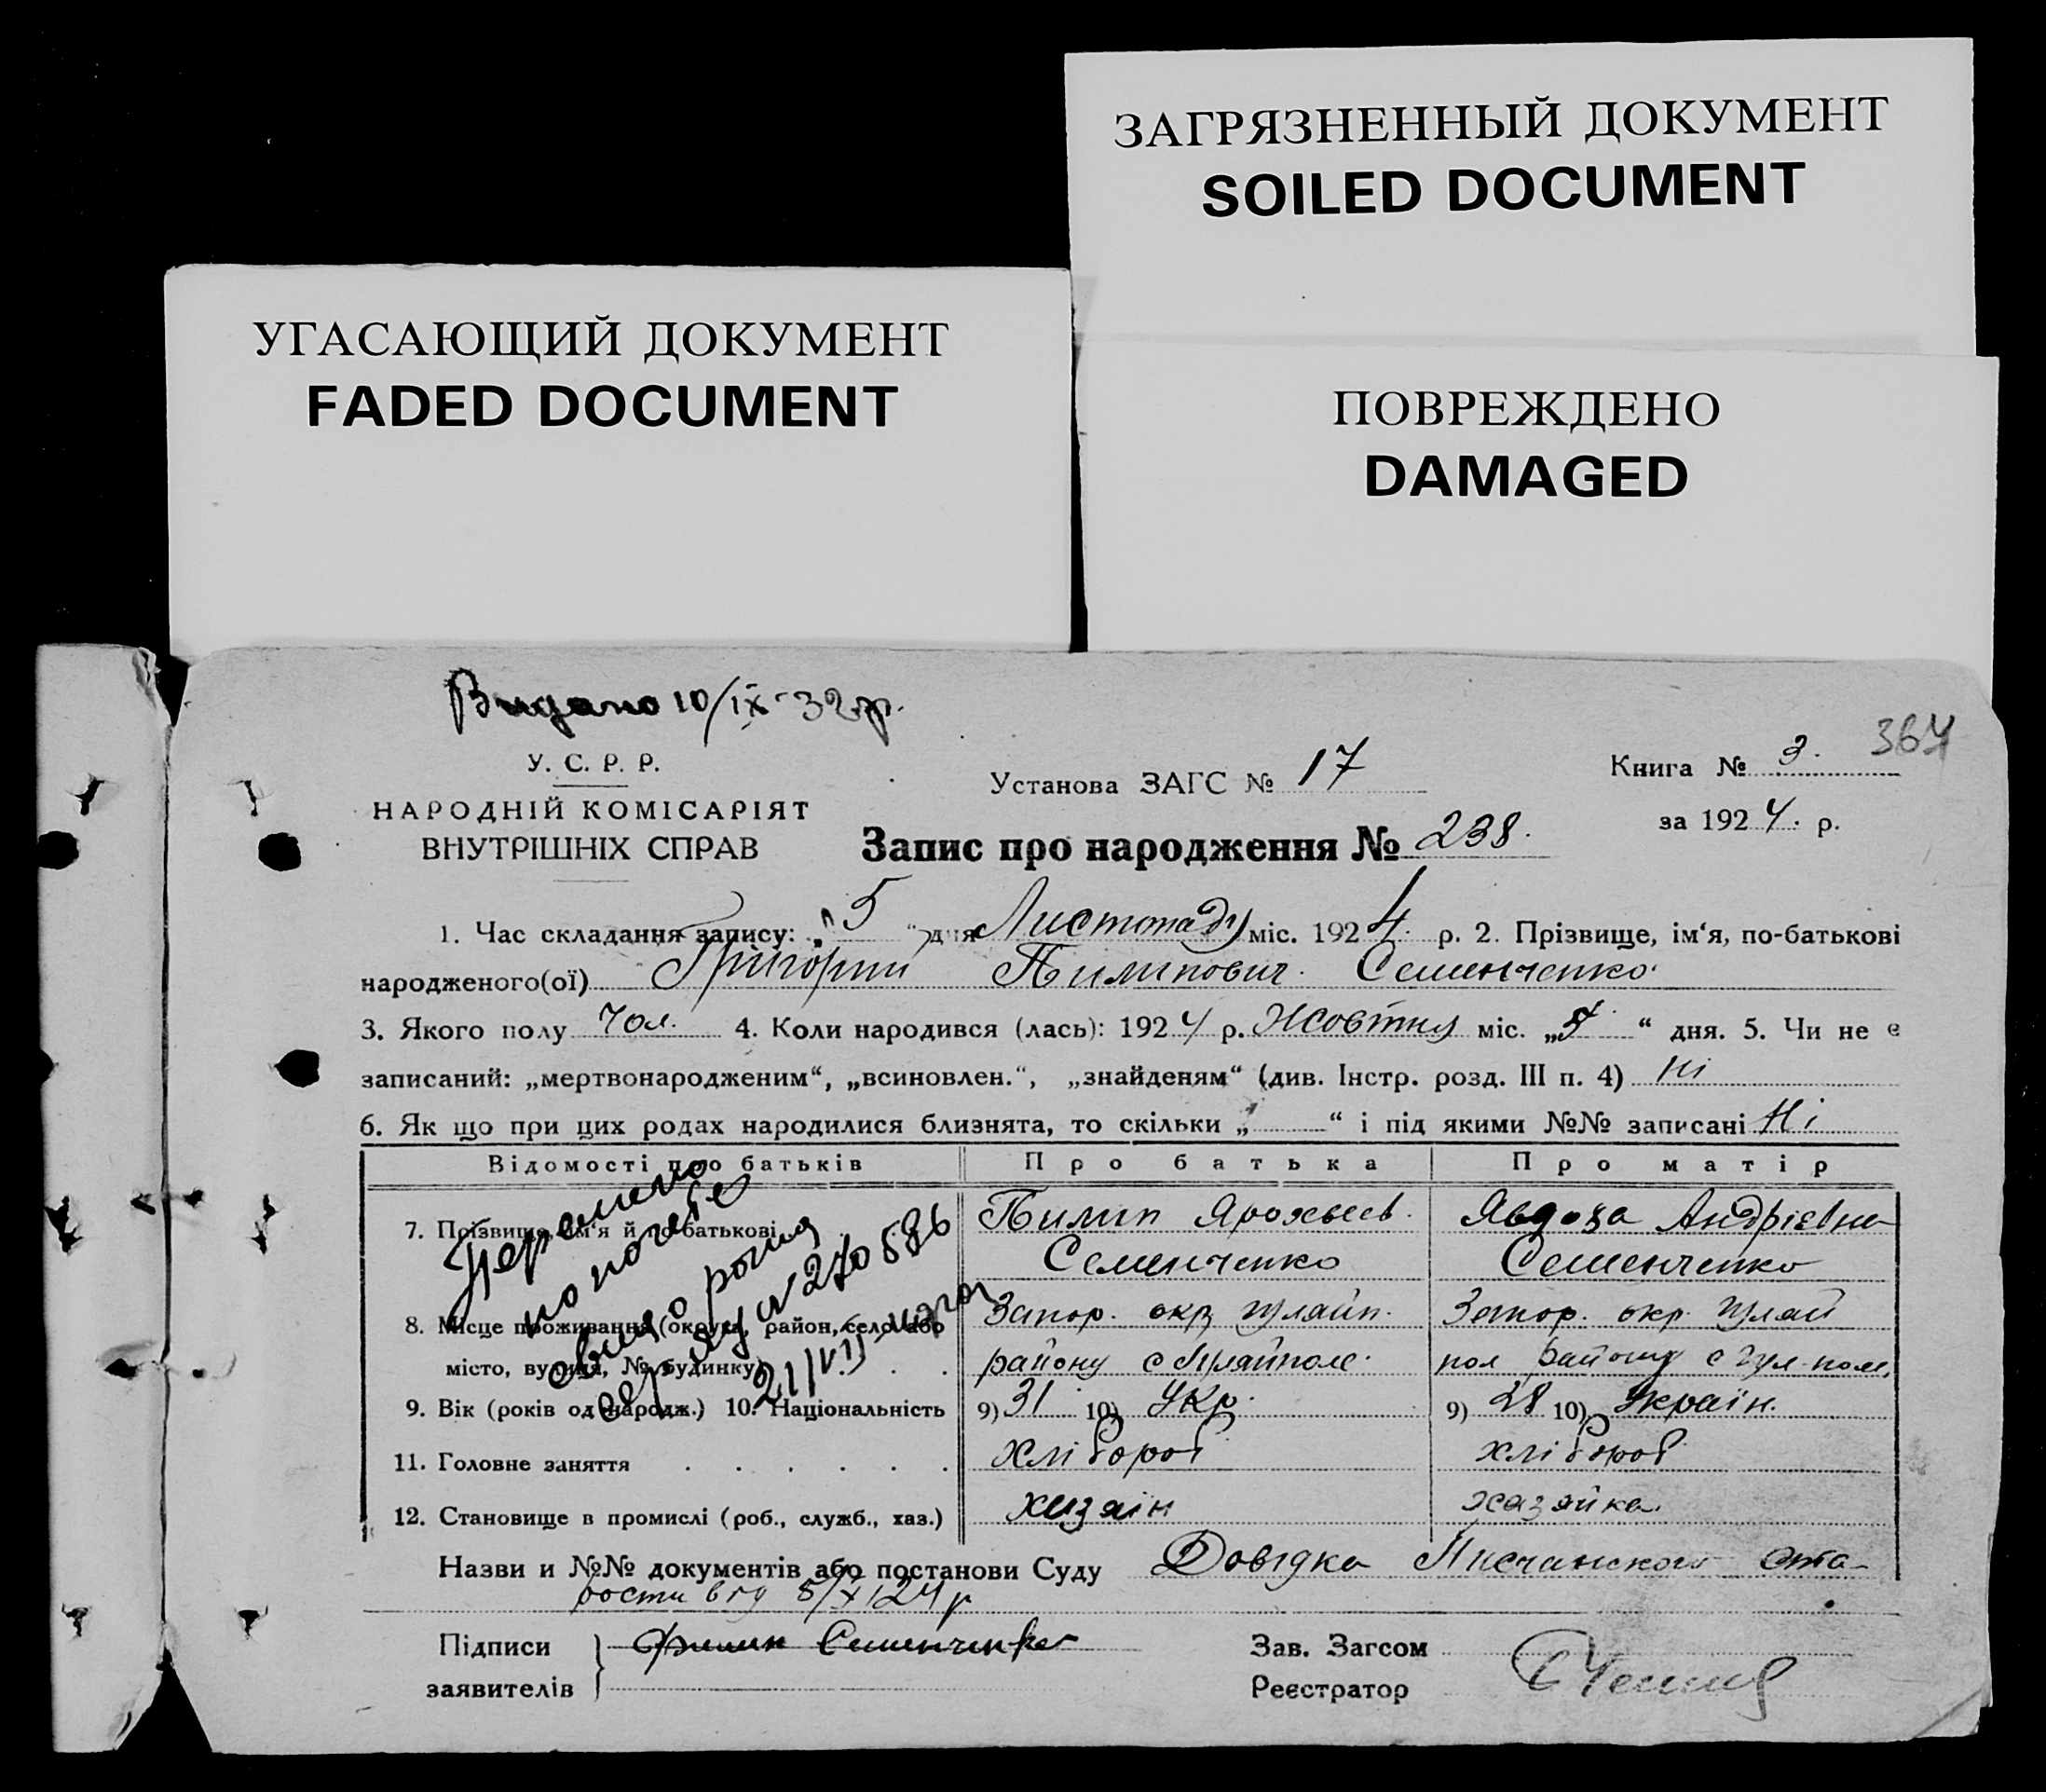 ЗАГРЯЗНЕННЫЙ ДОКУМЕНТ
SOILED DOCUMENT
УГАСАЮЩИЙ ДОКУМЕНТ
FADED DOCUMENT
ПОВРЕЖДЕНО
DAMAGED
Видано 10/ІХ-32р.
У. С. Р. Р.
НАРОДНІЙ КОМІСАРІЯТ
ВНУТРІШНІХ СПРАВ
Установа ЗАГС № 17
Книга № 3. 367
за 1924. р.
Запис про народження № 238.
1. Час складання запису: „5" дня Листопаду міс. 1924. р. 2. Прізвище, ім'я, по-батькові
народженого(ої) Григорий Пилипович Семенченко.
3. Якого полу Чол. 4. Коли народився (лась): 1924 р. Жовтня міс. „ “ дня. 5. Чи не є
записаний: „мертвонародженим“, „всиновлен.“, „знайденям“ (див. Інстр. розд. III п. 4) Ні
6. Як що при цих родах народилися близнята, то скільки „ “ і під якими №№ записані Ні
Відомості про батьків Про батька Про матір
7. Прізвище, ім'я й по-батькові Пилип Ярохвеев. Явдоха Андрієвна
Семенченко Семенченко
8. Місце проживання (округа, район, село або Запор. окр Гуляйп. Запор. окр. Гуляй
місто, вулиця, № будинку) району с Гуляйполе. пол району с Гул-поле,
9. Вік (років од народж.) 10. Національність 9) 31 10) Укр. 9) 28 10) Україн.
11. Головне заняття хлібороб хлібороб
12. Становище в промислі (роб., служб., хаз.) хазяін хазяйка.
№ 270586
Назви и №№ документів або постанови Суду Довідка ста-
рости від 5/X 24 р
Підписи
заявителів
Филип Семенченко
Зав. Загсом
Реєстратор